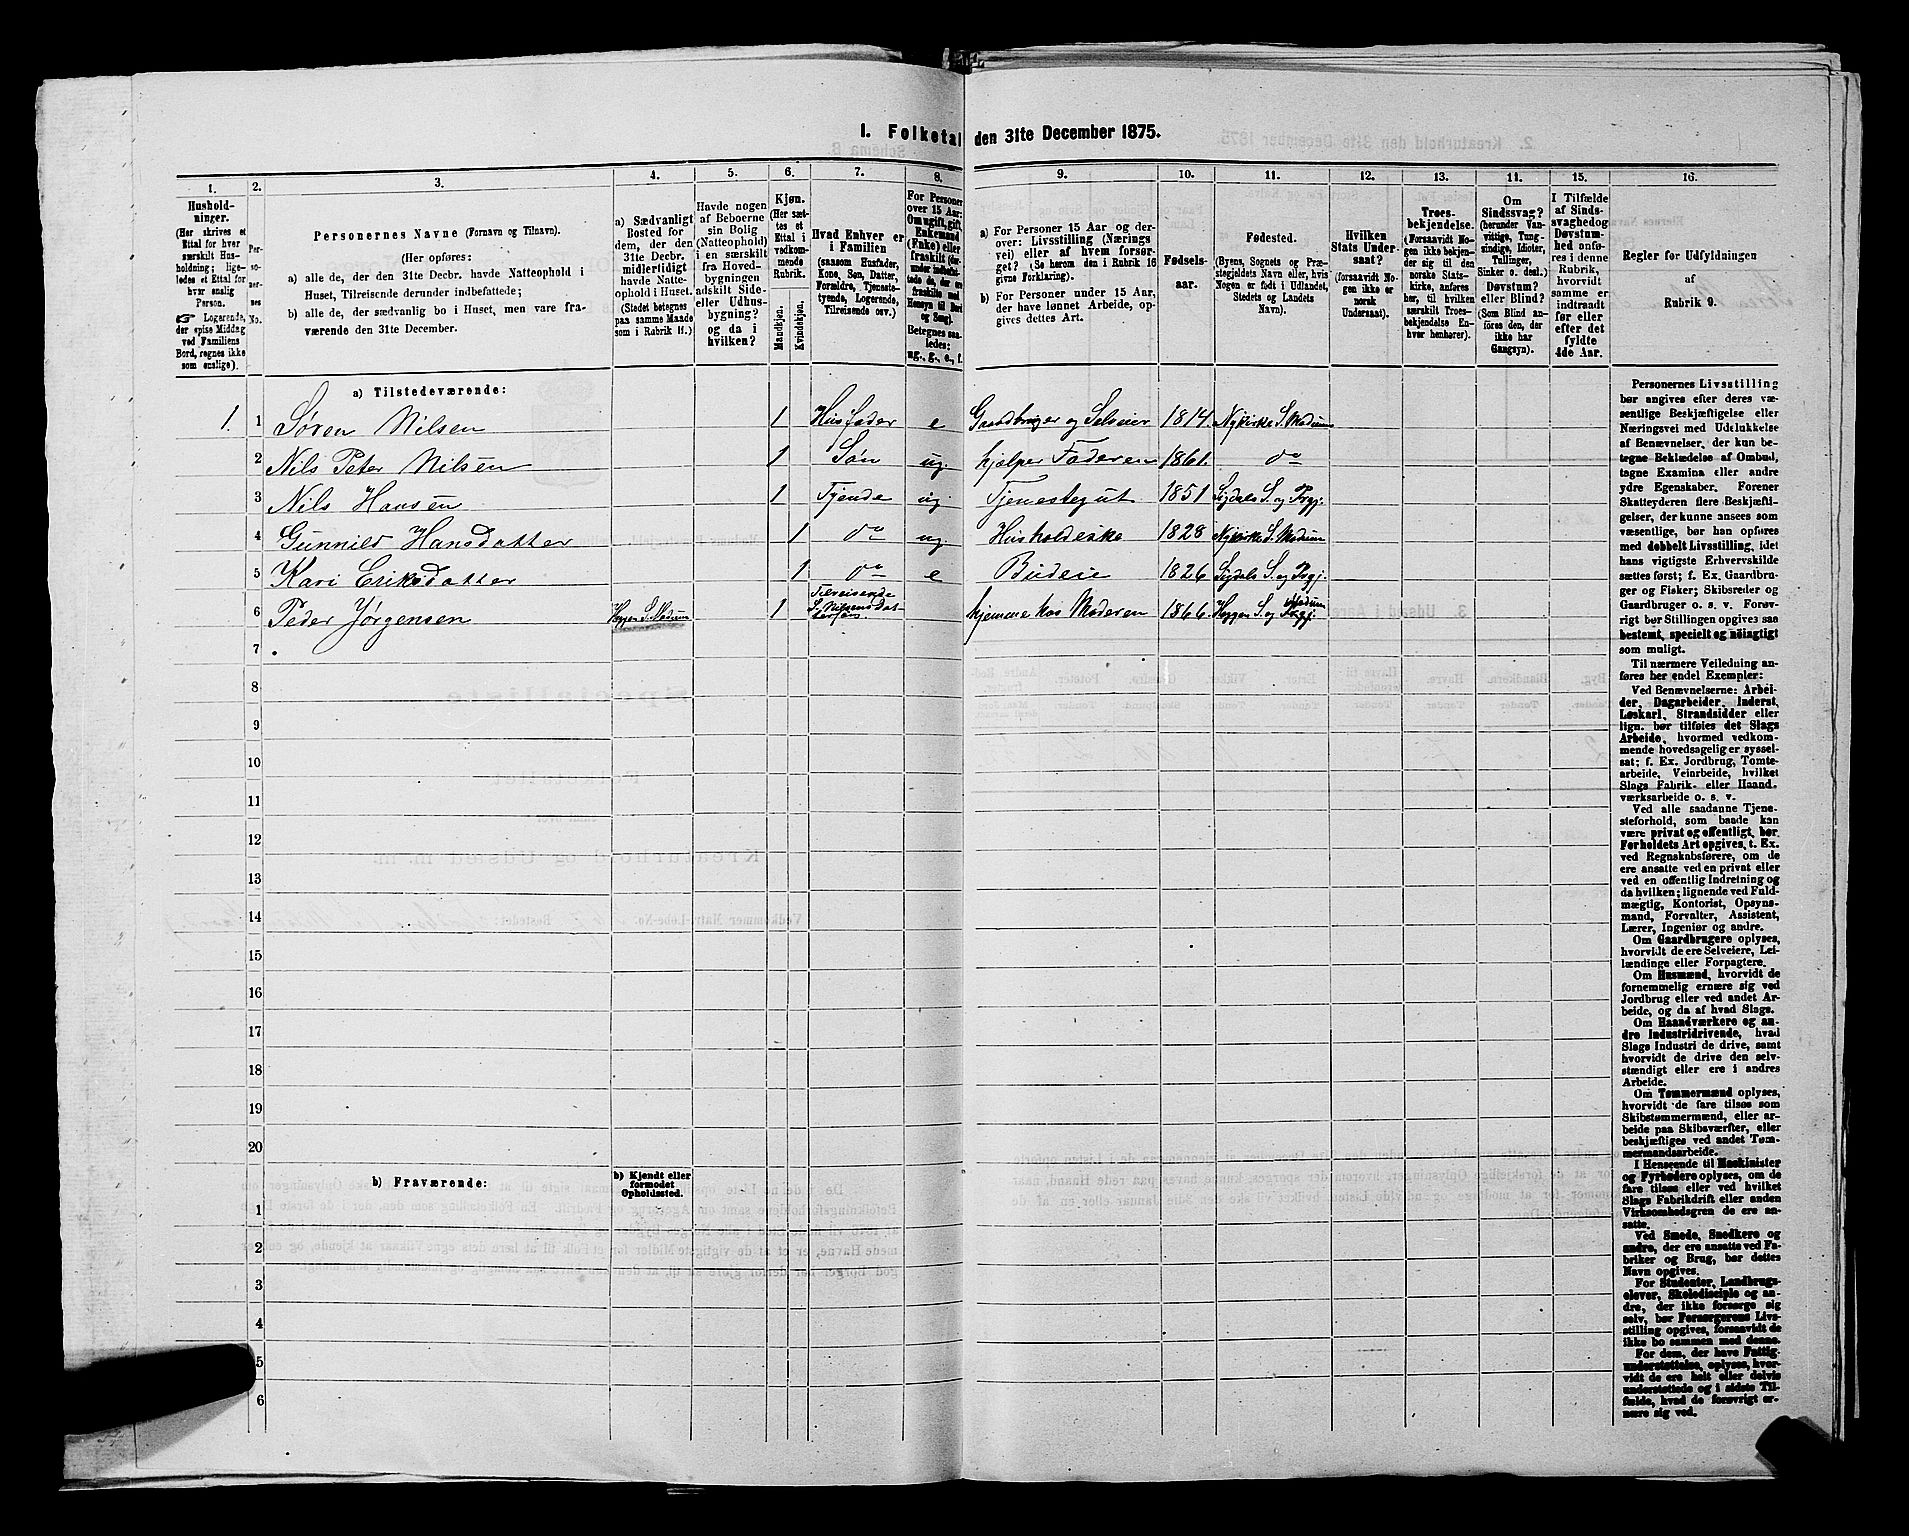 I. Folketal den 31te December 1875.
1.
2.
3.
4.
5.
6.
7.
8.
9.
10.
11.
12.
13.
11.
15.
16.
Hushold-
ninger.
(Her skrives et
Ettal for hver
særskilt Hus-
holdning; lige-
ledes et Ettal for
hver enslig
Person.
☞ Logerende,
der spise Middag
ved Familiens
Bord, regnes ikke
som enslige).
Per-
so-
ner-
nes
No.
Personernes Navne (Fornavn og Tilnavn).
(Her opføres:
a) alle de, der den 31te Decbr. havde Natteophold i
Huset, Tilreisende derunder indbefattede;
b) alle de, der sædvanlig bo i Huset, men vare fra-
værende den 31te December.
a) Sædvanligt
Bosted for
dem, der den
31te Decbr.
midlertidigt
havde Natte-
ophold i Huset.
(Stedet betegnes
paa samme Maade
som i Rubrik 11.)
Havde nogen
af Beboerne
sin Bolig
(Natteophold)
i en særskilt
fra Hoved-
bygningen
adskilt Side-
eller Udhus-
bygning?
og da i
hvilken?
Kjøn.
(Her sæt-
tes et
Ettal i
vedkom-
mende
Rubrik.
Mandkjøn.
Kvindekjøn.
Hvad Enhver er
i Familien
(saasom Husfader,
Kone, Søn, Datter,
Forældre, Tjeneste-
tyende, Logerende,
Tilreisende osv.)
For Personer
over 15 Aar:
Om ugift, gift,
Enkemand
(Enke) eller
fraskilt (der-
under indbefat-
tede de, der ere
fraskilte med
Hensyn til Bord
og Seng).
Betegnes saa-
ledes:
ug., g., e., f.
a) For Personer 15 Aar og der-
over: Livsstilling (Nærings
vei) eller af hvem forsør
get? (Se herom den i Rubrik 16
givne Forklaring).
b) For Personer under 15 Aar,
der have lønnet Arbeide, op-
gives dettes Art.
Fødsels-
aar.
Fødested.
(Byens, Sognets og Præ-
stegjeldets Navn eller, hvis
Nogen er født i Udlandet,
Stedets og Landets
Navn).
Hvilken
Stats Under-
saat?
(forsaavidt No-
gen ikke er
norsk
Undersaat).
Troes-
bekjendelse.
(Forsaavidt No-
gen ikke bekjen-
der sig til den
norske Stats-
kirke, anføres
her, til hvilken
særskilt Troes-
bekjendelse En-
hver henhører).
Om
Sindssvag?
(herunder Van-
vittige, Tung-
sindige, Idioter,
Tullinger,
Sinker o. desl.)
Døvstum?
eller Blind?
(Som Blind an-
føres den, der
ikke har
Gangsyn).
I Tilfælde
af Sinds-
svaghed og
Døvstum-
hed anfø-
res i denne
Rubrik,
hvorvidt
samme er
indtraadt
før eller
efter det
fyldte
4de Aar.
Regler for Udfyldningen
af
Rubrik 9.
a) Tilstedeværende:
1. 1 Søren Nilsen 1 Husfader e Gaardbruger og Selveier 1814. Nykirke S. Modum
2 Nils Peter Nilsen 1 Søn ug. hjelper Faderen 1861. do
3 Nils Hansen 1 Tyende ug. Tjenestegut 1851 Sigdals S. og Prgj.
4 Gunnild Hansdatter 1 do ug. Husholderske 1828 Nykirke S. Modum
5 Kari Eriksdatter 1 do e Budeie 1826 Sigdals S. og Prgj.
6 Peder Jørgensen Heggen S. Modum 1 Tilreisende S. Nilsens Datters hjemme hos Moderen 1866. Heggen S. og Modum Prgj.
7
8
9
10
11
12
13
14
15
16
17
18
19
20
b) Fraværende:
b) Kjendt eller
formodet
Opholdssted.
1
2
3
4
5
6
Personernes Livsstilling
bør angives efter deres væ-
sentlige Beskjæftigelse eller
Næringsvei med Udelukkelse
af Benævnelser, der kun be-
tegne Beklædelse af Ombud,
tagne Examina eller andre
ydre Egenskaber. Forener
Skatteyderen flere Beskjæfti-
gelser, der kunne ansees som
væsentlige, bør han opføres
med dobbelt Livsstilling, idet
hans vigtigste Erhvervskilde
sættes først; f. Ex. Gaardbru-
ger og Fisker; Skibsreder og
Gaardbruger o. s. v. Forøv-
rigt bør Stillingen opgives saa
bestemt, specielt og nöiagtigt
som muligt.
Til nærmere Veiledning an-
føres her endel Exempler:
Ved Benævnelserne: Arbei-
der, Dagarbeider, Inderst,
Løskarl, Strandsidder eller
lign. bør tilføies det Slags
Arbeide, hvormed vedkom-
mende hovedsagelig er syssel-
sat; f. Ex. Jordbrug, Tomte-
arbeide, Veiarbeide, hvilket
Slags Fabrik- eller Haand-
værksarbeide o. s. v.
Ved alle saadanne Tjene-
steforhold, som baade kan
være privat og offentligt, bør
Forholdets Art opgives, t. Ex.
ved Regnskabsførere, om de
ere ansatte ved en privat eller
ved en offentlig Indretning og
da hvilken; lignende ved Fuld-
mægtig, Kontorist, Opsyns-
mand, Forvalter, Assistent,
Lærer, Ingeniør og andre.
Om Gaardbrugere oplyses,
hvorvidt de ere Selveiere, Lei-
lændinge eller Forpagtere.
Om Husmænd, hvorvidt de
fornemmelig ernære sig ved
Jordbrug eller ved andet Ar-
beide, og da af hvad Slags.
Om Haandværkere og an-
dre Industridrivende, hvad
Slags Industri de drive, samt
hvorvidt de drive den selv-
stændigt eller ere i andres
Arbeide.
Om Tømmermænd oplyses,
hvorvidt de fare tilsøs som
Skibstømmermænd, eller ar-
beide paa Skibsværfter, eller
beskjæftiges ved andet Tøm-
mermandsarbeide.
I Henseende til Maskinister
og Fyrbødere oplyses, om de
fare tilsøs eller ved hvilket
Slags Fabrikdrift eller anden
Virksomhedsgren de ere an-
satte.
Ved Smede, Snedkere og
andre, der ere ansatte ved Fa-
briker og Brug, bør dettes
Navn opgives.
For Studenter, Landbrugs-
elever, Skoledisciple og an-
dre, der ikke forsørge sig
selv, bør Forsørgerens Livs-
stilling opgives, forsaavidt de
ikke bo sammen med denne.
For dem, der have Fattig-
understøttelse, oplyses, hvor-
vidt de ere helt eller delvis
understøttede og i sidste Til-
fælde, hvad de forøvrigt er-
nære sig ved.